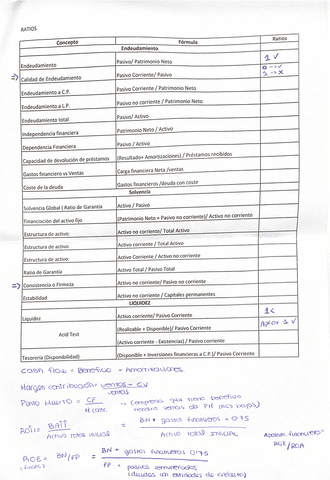 RATIOS
Concepto Fórmula Ratios
Endeudamiento
Endeudamiento Pasivo/ Patrimonio Neto 1 ✓
⇒ Calidad de Endeudamiento Pasivo Corriente/ Pasivo 0 → ✓ 1 → x
Endeudamiento a C.P. Pasivo Corriente / Patrimonio Neto
Endeudamiento a L.P. Pasivo no corriente / Patrimonio Neto
Endeudamiento total Pasivo/ Activo
Independencia financiera Patrimonio Neto / Activo
Dependencia Financiera Pasivo / Activo
Capacidad de devolución de préstamos (Resultado+ Amortizaciones) / Préstamos recibidos
Gastos financiera vs Ventas Carga financiera Neta /ventas
Coste de la deuda Gastos financieros /deuda con coste
Solvencia
Solvencia Global ( Ratio de Garantía Activo / Pasivo
Financiación del activo fijo (Patrimonio Neto + Pasivo no corriente)/ Activo no corriente
Estructura de activo: Activo no corriente/ Total Activo
Estructura de activo: Activo corriente / Total Activo
Estructura de activo: Activo Corriente / Activo no corriente
Ratio de Garantía Activo Total / Pasivo Total
⇒ Consistencia o Firmeza Activo no corriente/ Pasivo no corriente
Estabilidad Activo no corriente/ Capitales permanentes
LIQUIDEZ
Liquidez Activo corriente/ Pasivo Corriente 1<
Acid Test (Realicable + Disponible)/ Pasivo Corriente Aprox 1 ✓
(Activo corriente - Existencias) / Pasivo corriente
Tesorería (Disponibilidad) (Disponible + Inversiones financieras a C.P.)/ Pasivo Corriente
Cash flow = Beneficio + Amortizaciones
Margen contribución = ventas - CV / ventas
Punto Muerto = CF / M cont. → (empresa que tiene beneficio tendrá ventas de PM más bajas)
ROI = BAII / Activo total inicial = BN + gastos financieros · 0'75 / Activo total inicial
Apalanc financiero ROE/ROA
ROE = BN/FP = BN + gastos financieros 0'75 / FP + pasivos remunerados
(deudas con entidades de crédito)